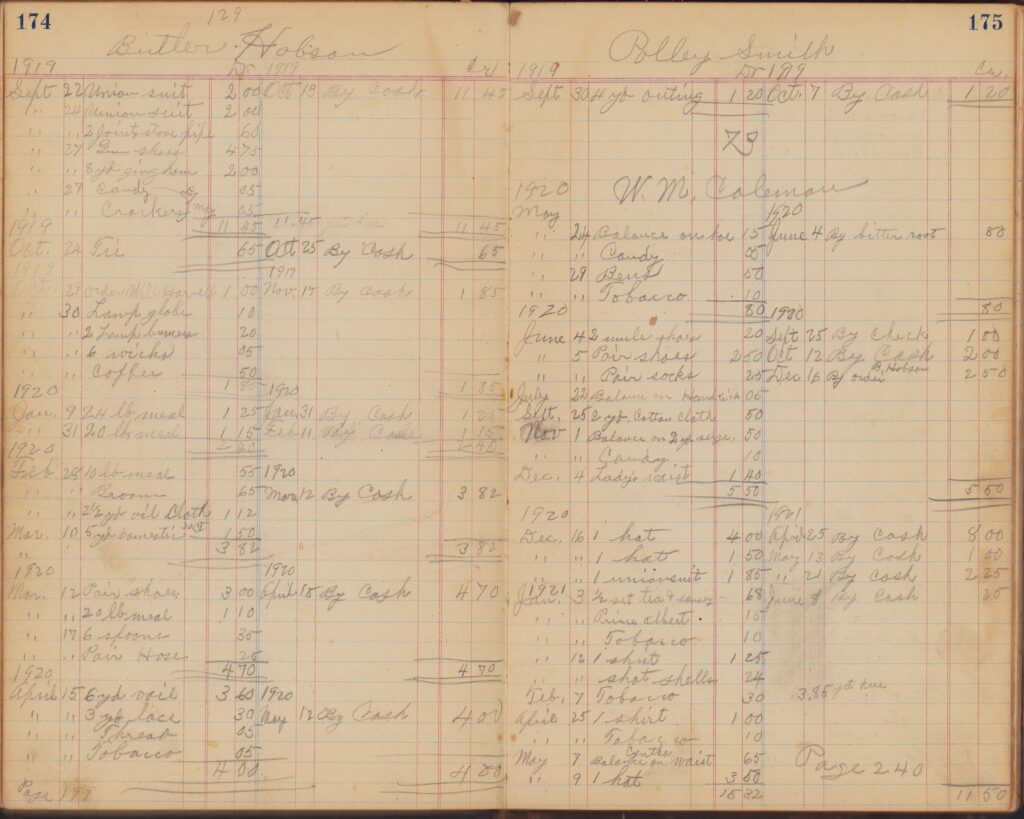 174
129
Butler Hobson
1919 Dr 1919 Cr
Sept 22 Union suit 2 00 Oct 13 By Cash 11 45
" 24 Union suit 2 00
" " 2 Joints stove pipe 60
" 27 Gum shoes 4 75
" " 8 yd gingham 2 00
" 27 Candy By 05
" " Crackers May 05
1919 11 45 11 45
Oct. 24 Tie 65 Oct 25 By Cash 65
1919 1919
Oct. 29 order 1 00 Nov. 15 By Cash 1 85
" 30 Lamp globe 10
" " 2 Lamp burners 20
" " 6 wicks 05
" " Coffee 50
1920 1 85 1920 1 85
Jan. 9 24 lb meal 1 25 Jan 31 By Cash 1 25
" 31 20 lb meal 1 15 Feb 11 By 1 15
1920 2 40 2 40
Feb 28 10 lb meal 55 1920
" " Broom 65 Mar 12 By Cash 3 82
" " 2½ yd oil Cloth 1 12
Mar. 10 5 yd Domestic 1 50
" 3 82 3 82
1920 1920
Mar. 12 Pair shoes 3 00 April 15 By Cash 4 70
" " 20 lb meal 1 10
" 17 6 spoons 35
" " Pair Hose 25
1920 4 70 4 70
April 15 6 yd voil 3 60 1920
" " 3 yd lace 30 May 12 By Cash 4 00
" " Thread 05
" " Tobacco 05
4 00 4 00
Page 199
175
Polley Smith
1919 Dr 1919 Cr.
Sept 30 4 yd outing 1 20 Oct. 7 By Cash 1 20
73
1920 W. M. Coleman
May 1920
" 24 Balance on hoe 15 June 4 By bitter root 80
" " Candy 05
" 29 Bens 50
" " Tobacco 10
1920 80 1920 80
June 4 2 mule shoes 20 Sept 25 By Check 1 00
" 5 Pair shoes 2 50 Oct 12 By Cash 2 00
" " Pair socks 25 Dec 16 By order B. Hobson 2 50
July 22 Balance on 05
Sept. 25 2 yd Cotton cloth 50
Nov 1 Balance on 2 yd serge. 50
" " Candy 10
Dec. 4 Lady's waist 1 40
5 50 5 50
1920 1921
Dec. 16 1 hat 4 00 April 25 By Cash 8 00
" " 1 hat 1 50 May 13 By Cash 1 00
" " 1 unionsuit 1 85 " 21 By Cash 2 25
1921
Jan. 3 ½ set tea & saucer 68 June 8 By Cash 25
" " Prince albert. 15
" " Tobacco 10
" 12 1 shirt 1 25
" " shot shells 24
Feb. 7 Tobacco 30 3.85 yet due
April 25 1 shirt 1 00
" " Tobacco 10
May 7 Balance on Cyntha waist 65
" 9 1 hat 3 50 Page 240
15 32 11 50